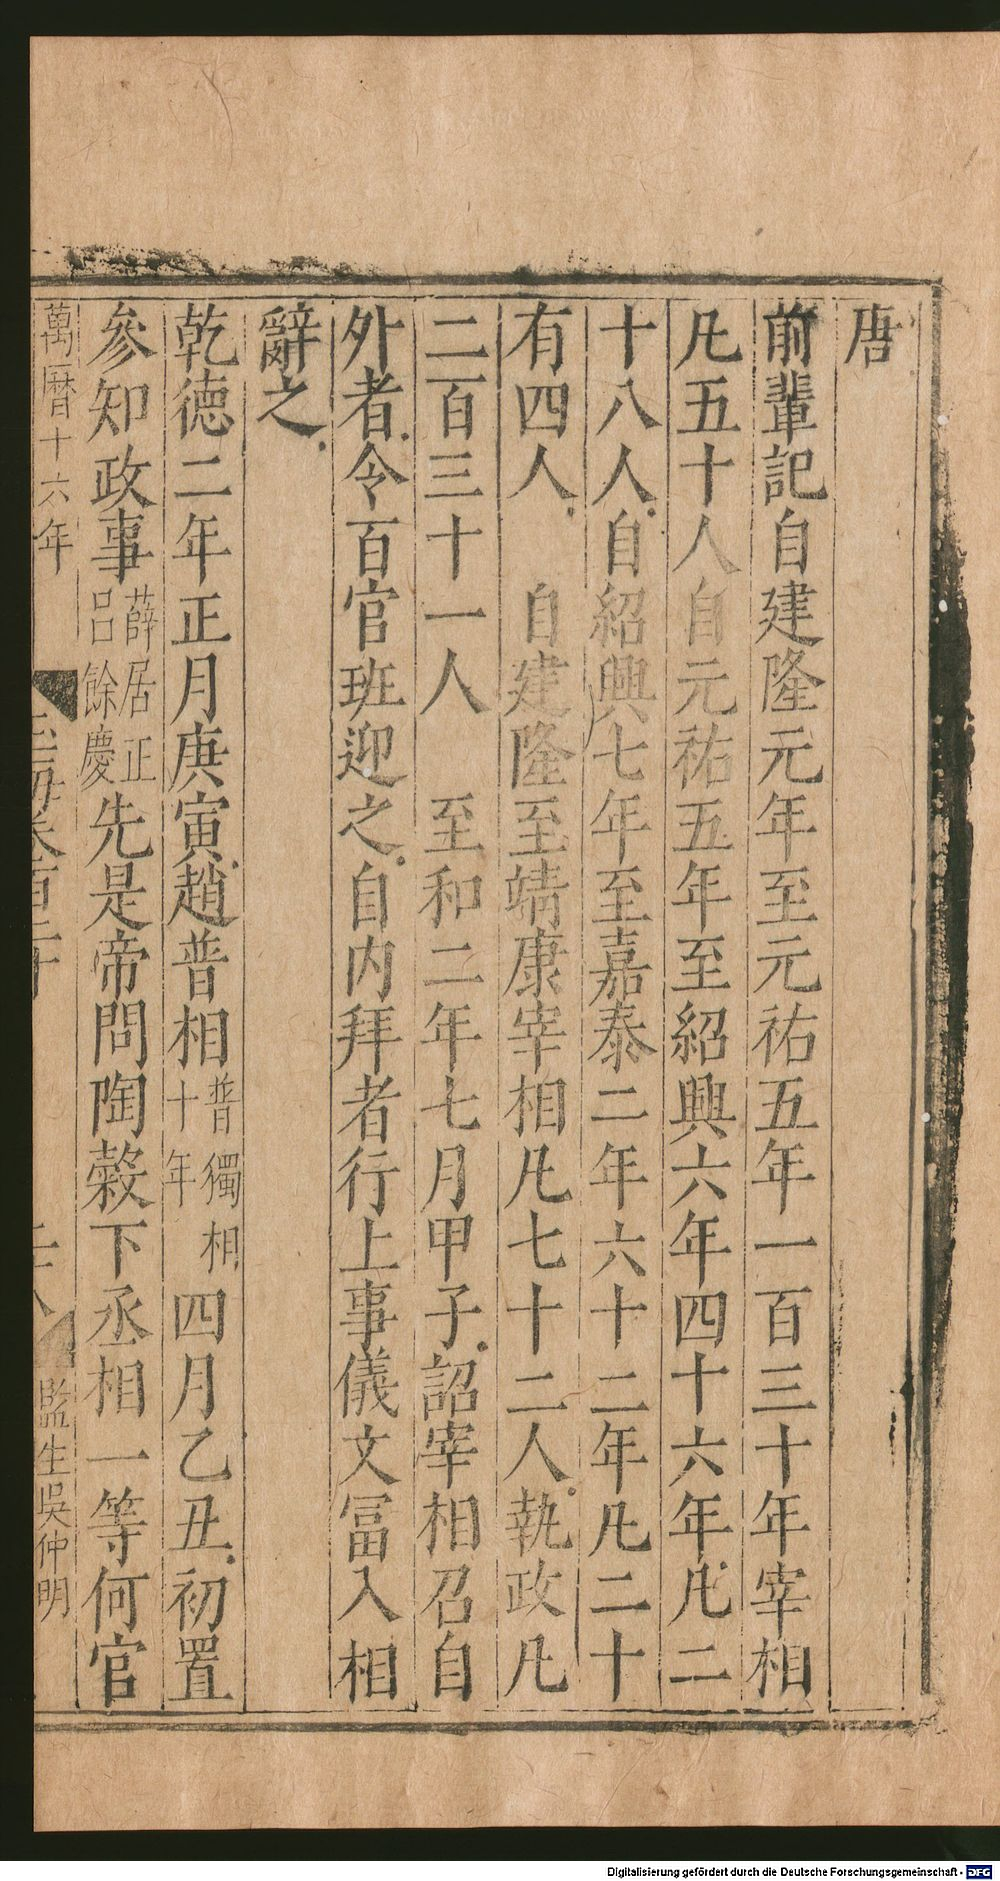 唐
前輩記自建隆元年至元祐五年一百三十年宰相
凡五十人自元祐五年至紹興六年四十六年凡二
十八人自紹興七年至嘉泰二年六十二年凡二十
有四人　自建隆至靖康宰相凡七十二人執政凡
二百三十一人　至和二年七月甲子詔宰相召自
外者令百官班迎之自内拜者行上事儀文冨入相
辭之
乾德二年正月庚寅趙普相普獨相十年四月乙丑初置
參知政事薛居正呂餘慶先是帝問陶穀下丞相一等何官
萬曆十六年
監生吳仲明
Digitalisierung gefördert durch die Deutsche Forschungsgemeinschaft - DFG